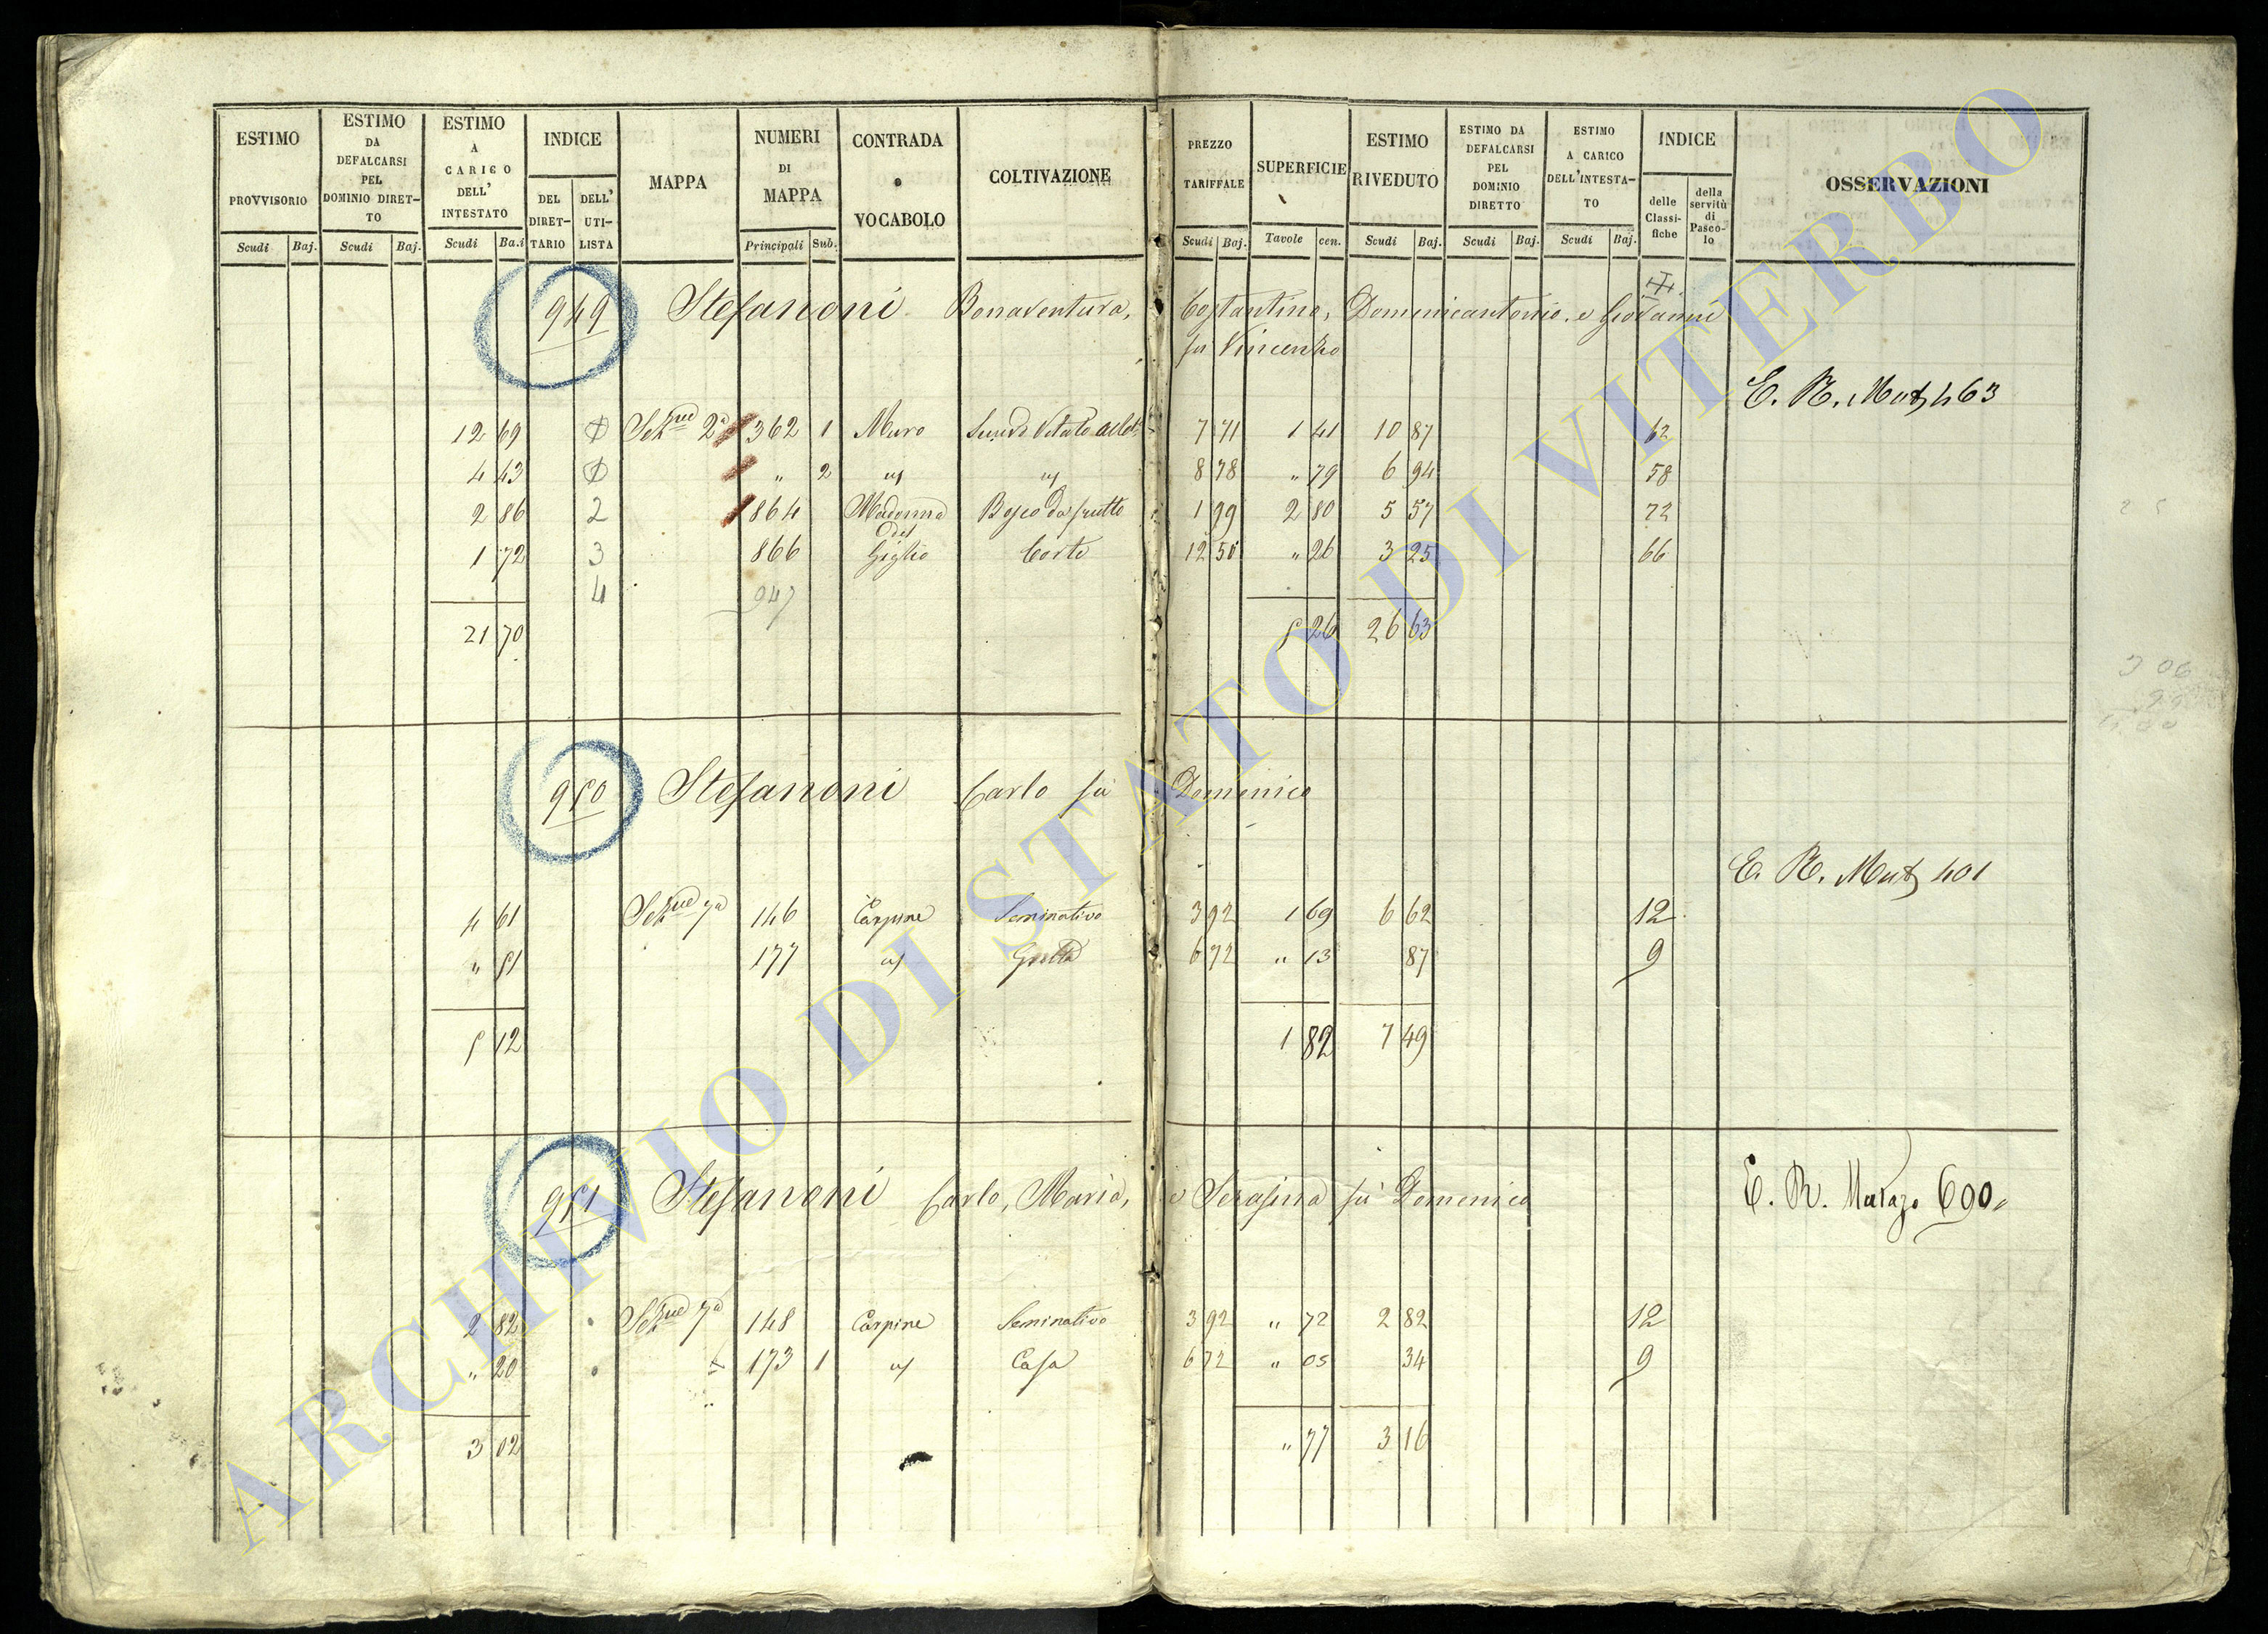 ESTIMO PROVVISORIO
ESTIMO DA DEFALCARSI PEL DOMINIO DIRETTO
ESTIMO A CARICO DELL' INTESTATO
INDICE
DEL DIRETTARIO
DELL' UTILISTA
MAPPA
NUMERI DI MAPPA
CONTRADA o VOCABOLO
COLTIVAZIONE
PREZZO TARIFFALE
SUPERFICIE
ESTIMO RIVEDUTO
ESTIMO DA DEFALCARSI PEL DOMINIO DIRETTO
ESTIMO A CARICO DELL'INTESTATO
INDICE
delle Classifiche
della servitù di Pascolo
OSSERVAZIONI
Scudi Baj. Scudi Baj. Scudi Baj. Principali Sub. Scudi Baj. Tavole cen. Scudi Baj. Scudi Baj. Scudi Baj.
949 Stefanoni Bonaventura, Costantino, Domenicantonio, e Giovanni
fu Vincenzo
E. R. Mut 463
12 69 Sezne 2a 362 1 Muro 7 71 1 41 10 87 62
4 43 " 2 8 78 " 79 6 94 58
2 86 2 864 Madonna Bosco da frutto 1 99 2 80 5 57 72
del
1 72 3 866 Giglio Corte 12 50 " 26 3 25 66
4 947
21 70 5 26 26 63
950 Stefanoni Carlo fu Domenico
E. R. Mut 401
4 61 Sezne 7a 146 Carpine Seminativo 3 92 1 69 6 62 12
" 51 177 Grotta 6 72 " 13 87 9
5 12 1 82 7 49
951 Stefanoni Carlo, Maria, e Serafina fu Domenico
E. R. 690
2 82 Sezne 7a 148 Carpine Seminativo 3 92 " 72 2 82 12
" 20 173 1 Casa 6 72 " 05 34 9
3 02 " 77 3 16
ARCHIVIO DI STATO DI VITERBO